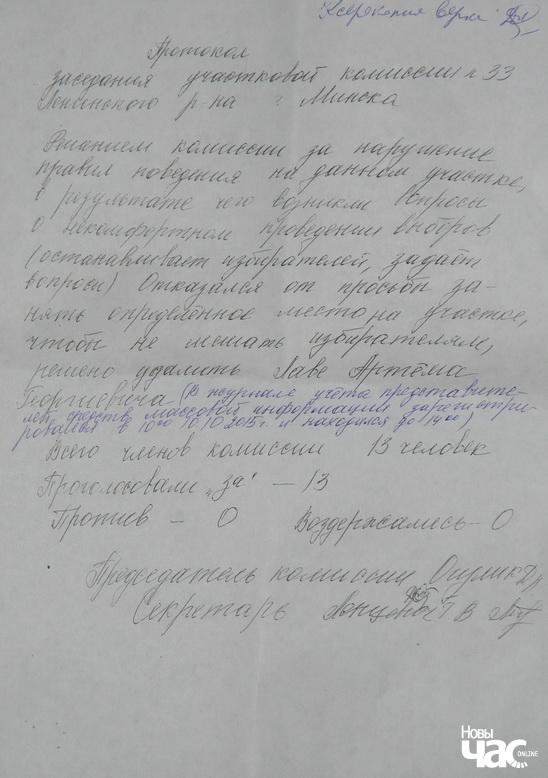 Ксерокопия верна
Протокол
заседания участковой комиссии № 33
Ленинского р-на г. Минска
Решением комиссии за нарушение
правил поведения на данном участке,
в результате чего возникли вопросы
о некомфортном проведении выборов
(останавливает избирателей, задаёт
вопросы) Отказался от просьбы за-
нять определённое место на участке,
чтобы не мешать избирателям,
решено удалить Лаве Артёма
Георгиевича (В журнале учёта представите-
лей средств массовой информации зарегистри-
ровался в 10⁰⁰ 10.10.2015 г. и находился до 14⁰⁰)
Всего членов комиссии 13 человек
Проголосовали „за" – 13
Против – 0 Воздержались – 0
Председатель комиссии
Секретарь
Новы
Час
ONLINE